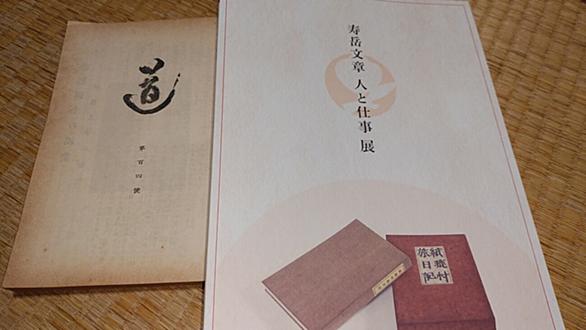 道
第百四號
寿岳文章 人と仕事 展
紙漉村
旅日記